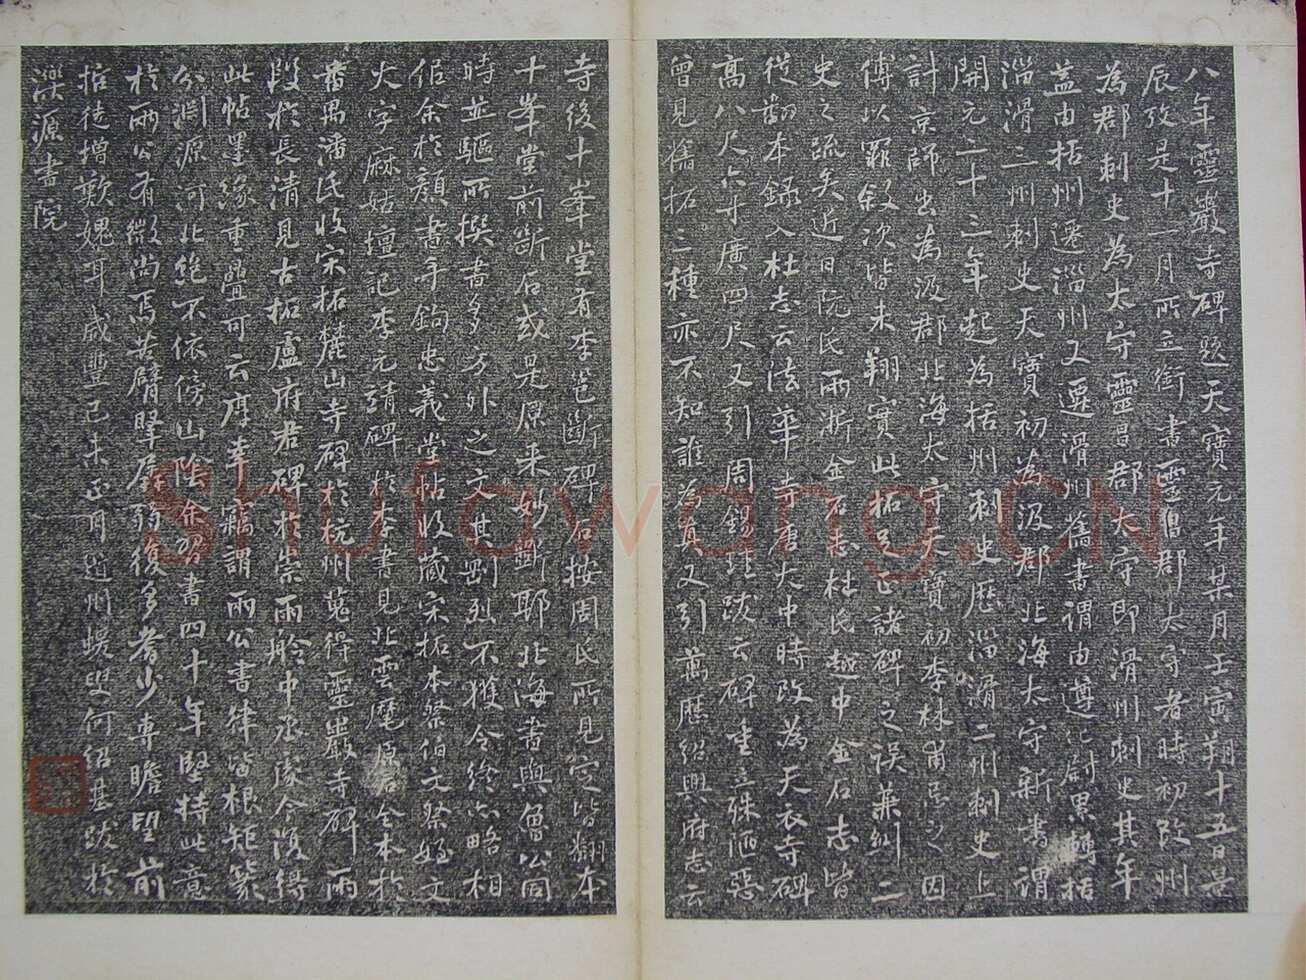 八年靈巖寺碑題天寶元年某月壬寅朔十五日景
辰攷是十一月所立銜書靈昌郡太守者時初改州
為郡刺史為太守靈昌郡太守即滑州刺史其年
蓋由括州遷淄州又遷滑州舊書謂由遵化尉累轉括
淄滑三州刺史天寶初為汲郡北海太守新書謂
開元二十三年起為括州刺史歷淄滑二州刺史上
計京師出為汲郡北海太守天寶初李林甫忌之因
傅以罪敘次皆未翔實此拓足正諸碑之誤兼糾二
史之疏矣近日阮氏兩浙金石志杜氏越中金石志皆
從翻本錄入杜志云法華寺唐大中時改為天衣寺碑
高八尺六寸廣四尺又引周錫珪跋云碑重立殊陋惡
曾見舊拓二種亦不知誰為真又引萬歷紹興府志云
寺後十峯堂有李邕斷碑石按周氏所見定皆翻本
十峯堂前斷石或是原來妙斲耶北海書與魯公同
時並驅所撰書多方外之文其剛烈不獲令終亦略相
似余於顏書手鉤忠義堂帖收藏宋拓本祭伯文祭姪文
大字麻姑壇記李元靖碑於李書見北雲麾原石全本於
番禺潘氏收宋拓麓山寺碑於杭州蒐得靈巖寺碑兩
段於長清見古拓盧府君碑於崇雨舲中丞處今復得
此帖墨緣重疊可云厚幸竊謂兩公書律皆根矩篆
分淵源河北絕不依傍山陰余習書四十年堅持此意
於兩公有微尚焉苦臂腕孱弱復多嗜少專瞻望前
哲徒增歎媿耳咸豐己未正月道州蝯叟何紹基跋於
濼源書院
Shufawang.CN